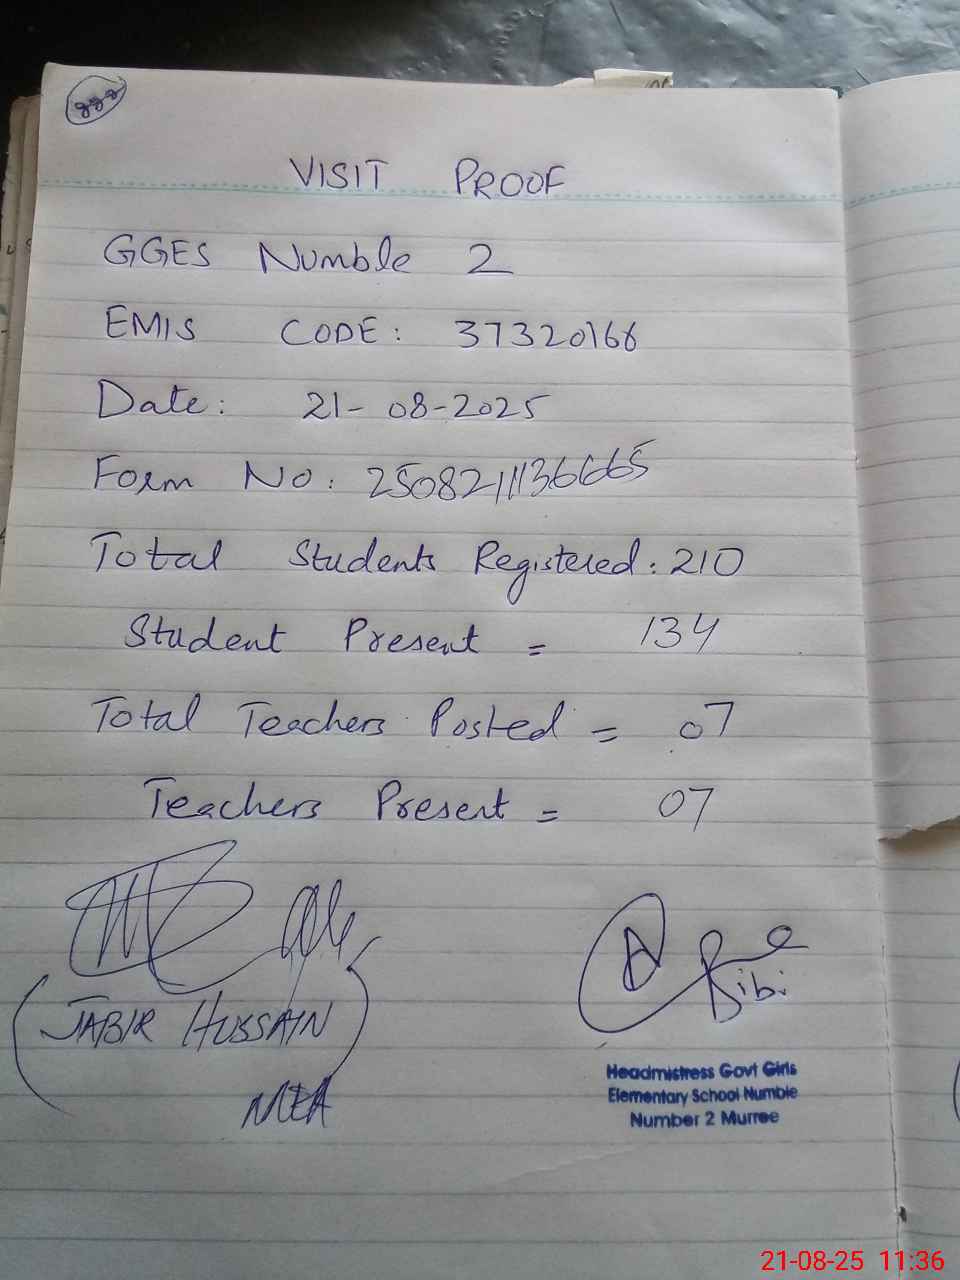 VISIT PROOF
GGES Numble 2
EMIS CODE: 37320166
Date: 21-08-2025
Form No: 2508211136665
Total Students Registered: 210
Student Present = 134
Total Teachers Posted = 07
Teachers Present = 07
JABIR HUSSAIN
MEA
Bibi
Headmistress Govt Girls
Elementary School Numble
Number 2 Murree
21-08-25 11:36